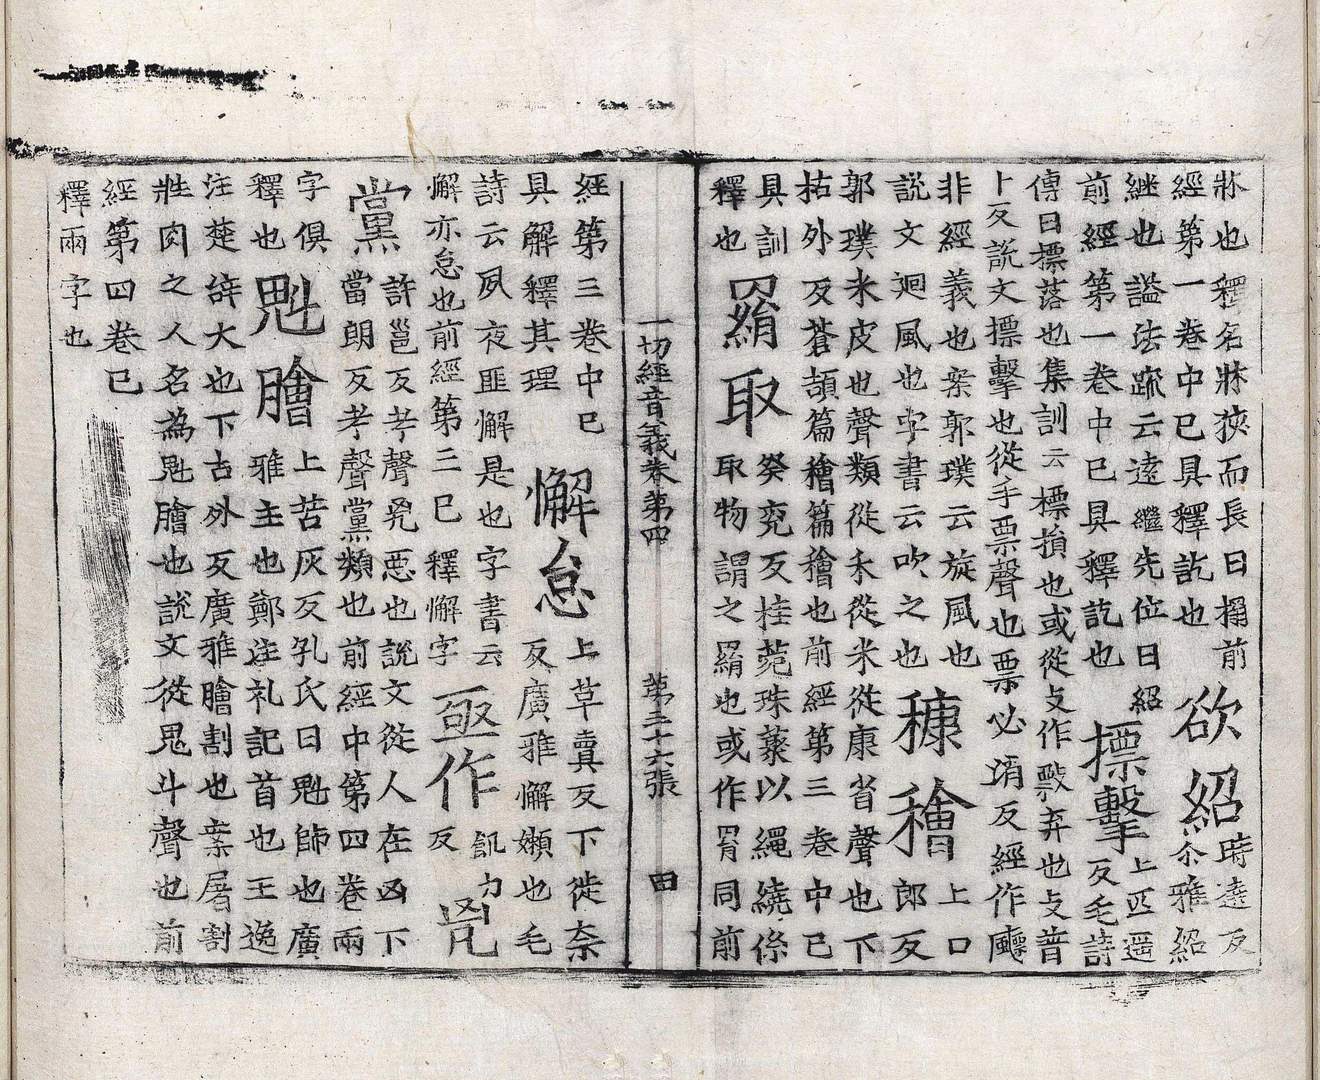 牀也釋名牀狹而長曰榻前
經第一卷中已具釋訖也
欲紹
時遶反
尒雅紹
継也謚法疏云遠繼先位曰紹
前經第一卷中已具釋訖也
摽擊
上匹遥
反毛詩
傳曰摽落也集訓云摽損也或從攴作弃也攴普
卜反説文摽擊也從手票聲也票必消反經作飈
非經義也案郭璞云旋風也
説文迴風也字書云吹之也
穅𥢶
上口
郎反
郭璞米皮也聲類從禾從米從康省聲也下
括外反蒼頡篇𥢶篇𥢶也前經第三卷中已
具訓
釋也
羂取
癸兖反桂菀珠藂以繩繞係
取物謂之羂也或作罥同前
一切經音義卷第四 第三十六張 田
經第三卷中已
具解釋其理
懈怠
上革賣反下徒柰
反廣雅懈嬾也毛
詩云夙夜匪懈是也字書云
懈亦怠也前經第二已釋懈字
亟作
飢力
反
兇
黨
許邕反考聲兇惡也説文從人在凶下
當朗反考聲黨類也前經中第四卷兩
字俱
釋也
魁膾
上苦灰反孔氏曰魁帥也廣
雅主也鄭注礼記首也王逸
注楚辭大也下古外反廣雅膾割也案屠割
牲肉之人名為魁膾也説文從鬼斗聲也前
經第四卷已
釋兩字也